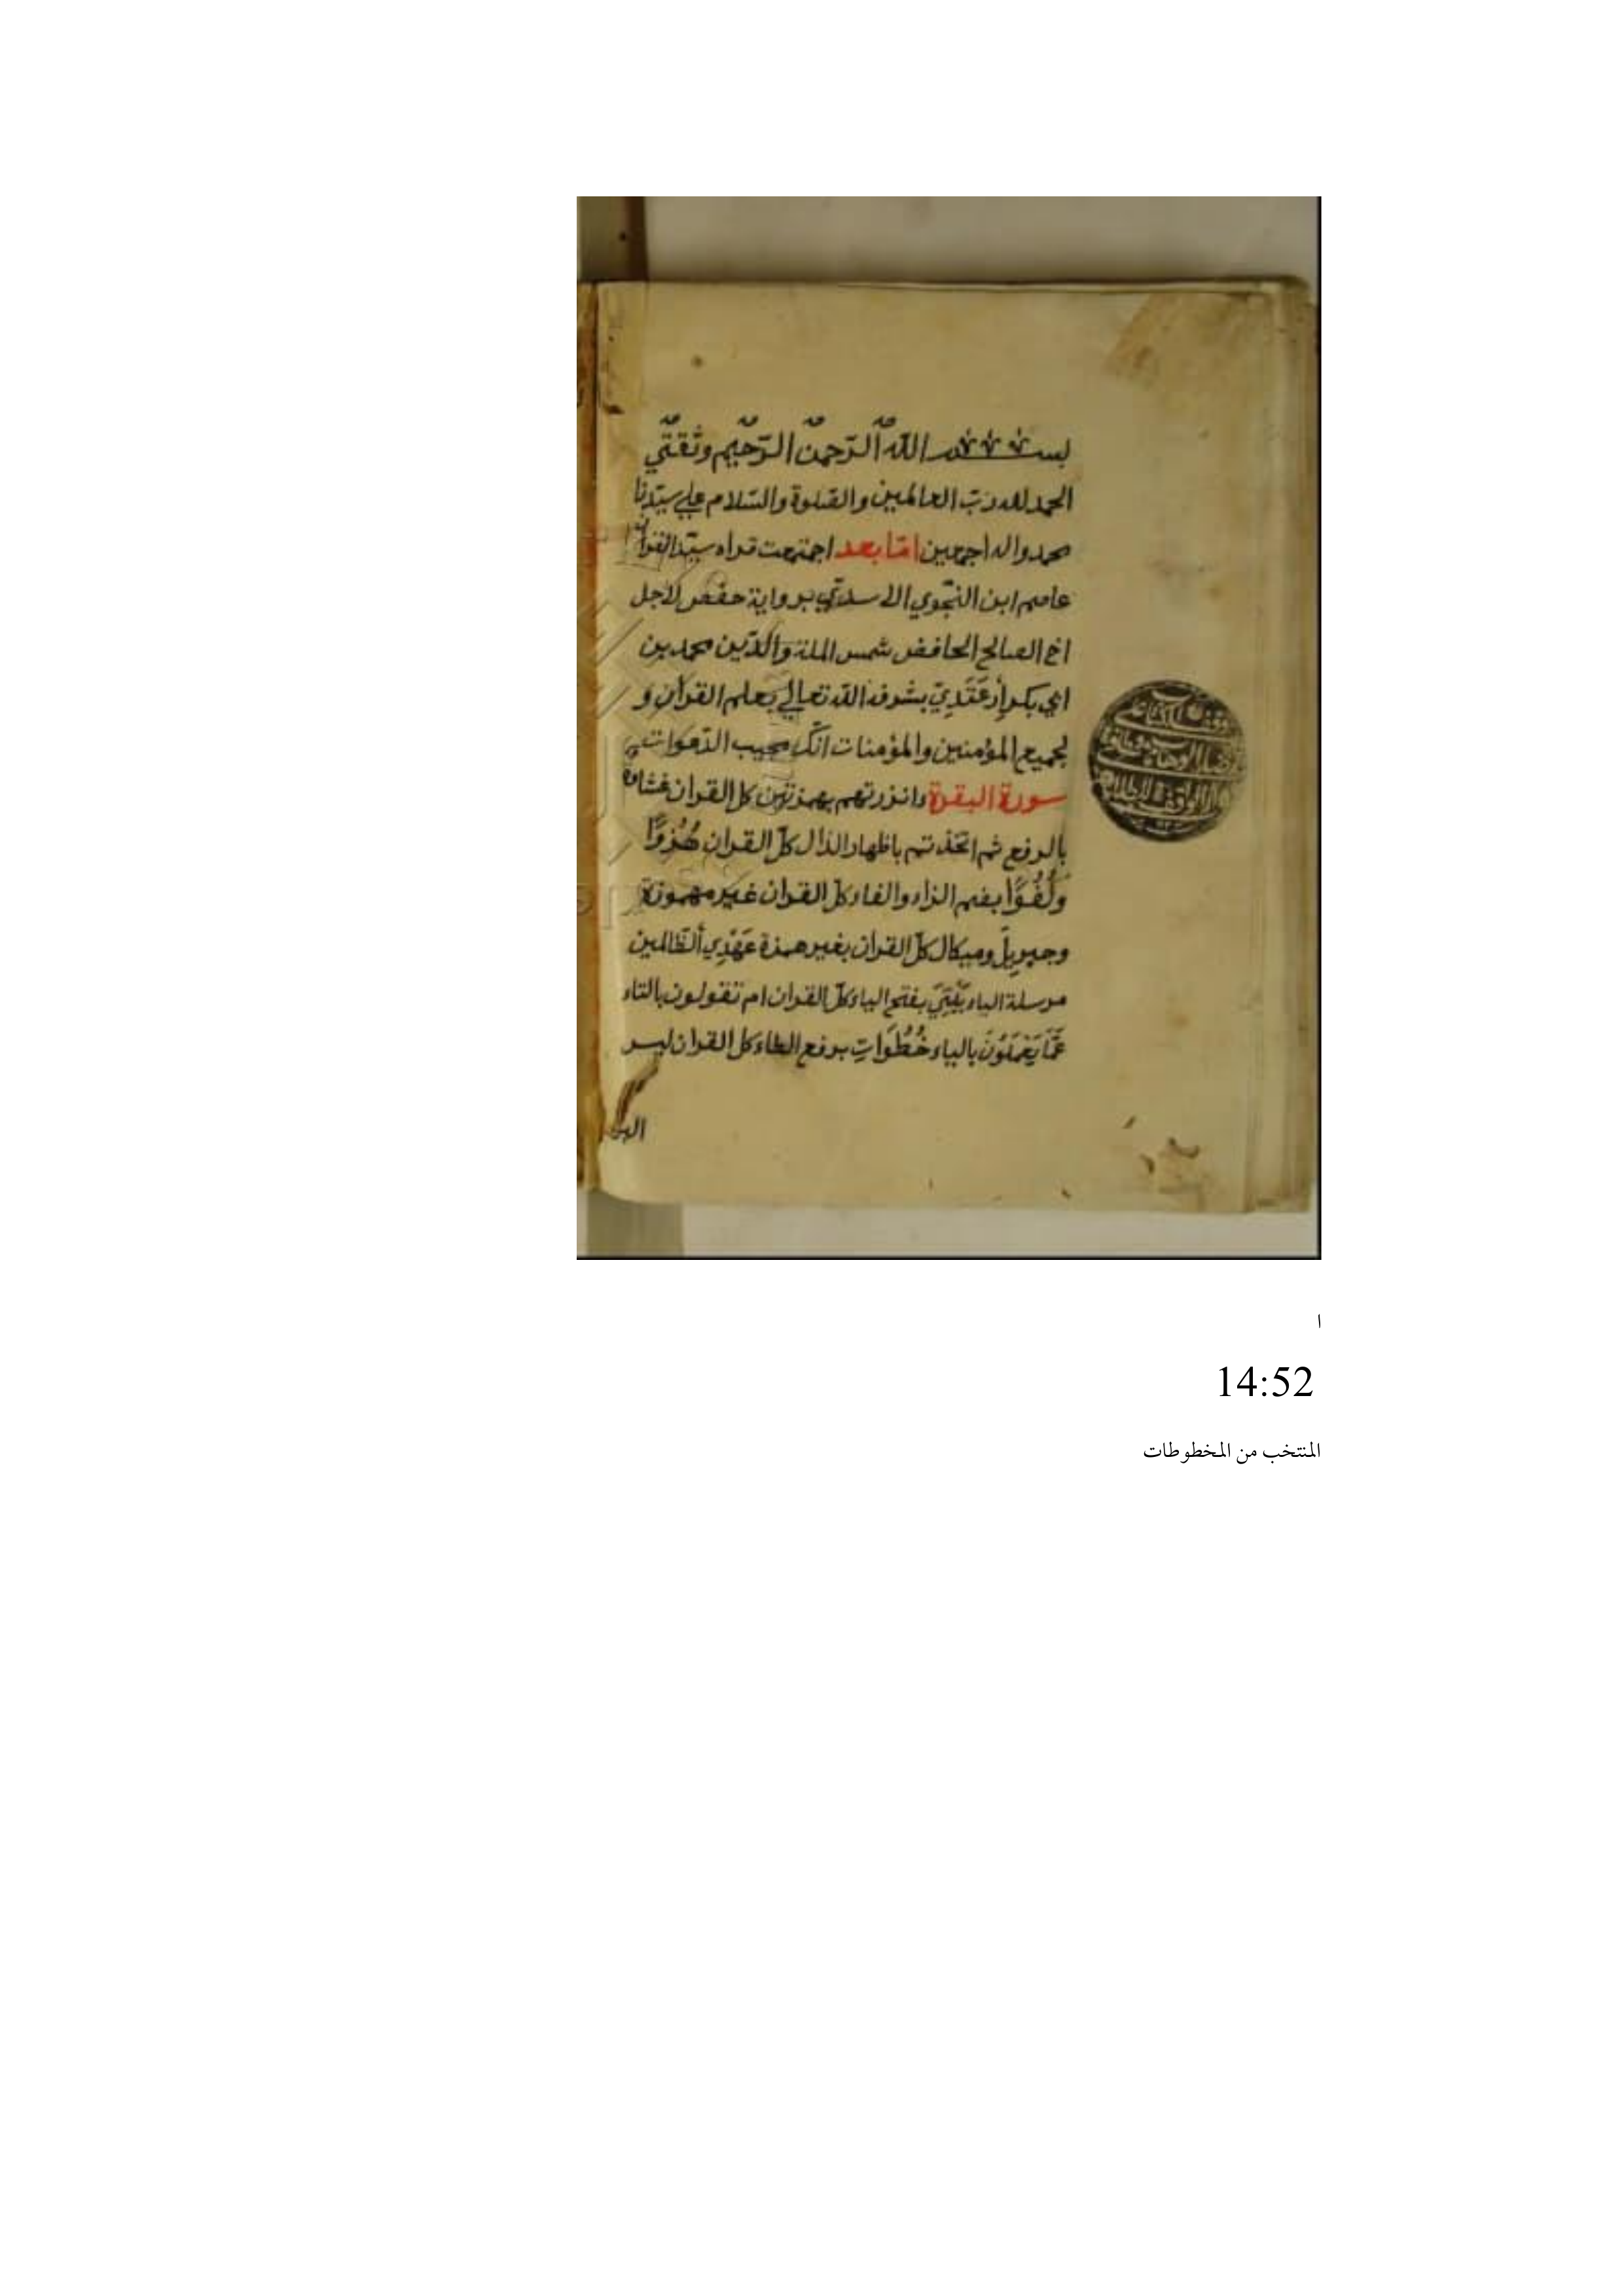 بسم الله الرحمن الرحيم وثقتي
الحمد لله رب العالمين والصلوة والسلام علي سيدنا
محمد واله اجمعين امّا بعد اجتمعت قراه سيّد القرآن
عاصم ابن النجوي الاسدي برواية حفص لاجل
اخ الصالح الحافض شمس الملة والدّين محمد بن
ابي بكر بشرف الله تعالي بعلم القرآن و
لجميع المؤمنين والمؤمنات انّك مجيب الدّعوات
سورة البقرة ءانذرتهم بهمزتين كل القران غشاوة
بالرفع ثم اتخذتم باظهار الذال كلّ القران هُزُوًا
وكُفُوًا بضم الزاء والفاء كلّ القران غير مهموزة
وجبرِيلَ وميكال كلّ القران بغير همزة عَهْدِي ألظّالمين
مرسلة الياء بَيْتِيَ بفتح الياء كلّ القران ام تقولون بالتاء
عَمَّا يَعْمَلُونَ بالياء خُطُوَاتِ برفع الطاء كل القران ليس
البر
ا
14:52
المنتخب من المخطوطات